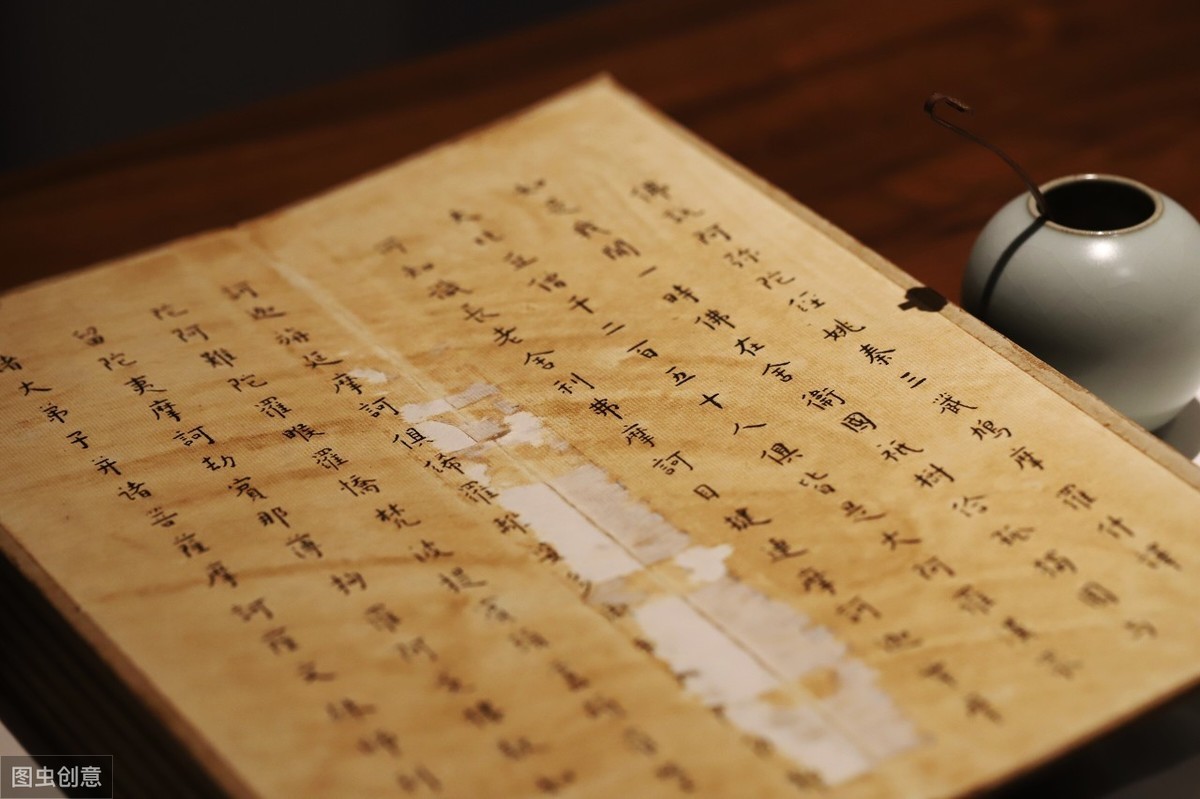 佛說阿弥陀经姚秦三蔵鳩摩羅什譯
如是我聞一時佛在舍衛國祇樹给孤獨園与
大比丘僧千二百五十人俱皆是大阿羅漢衆
所知識長老舍利弗摩訶目揵連摩訶迦葉摩
訶迦旃延摩訶俱絺羅離婆多
陀阿難陀羅睺羅憍梵波提賓頭盧
留陀夷摩訶劫賓那薄拘羅阿㝹樓馱如
諸大弟子并诸菩薩摩訶薩文殊師利
图虫创意